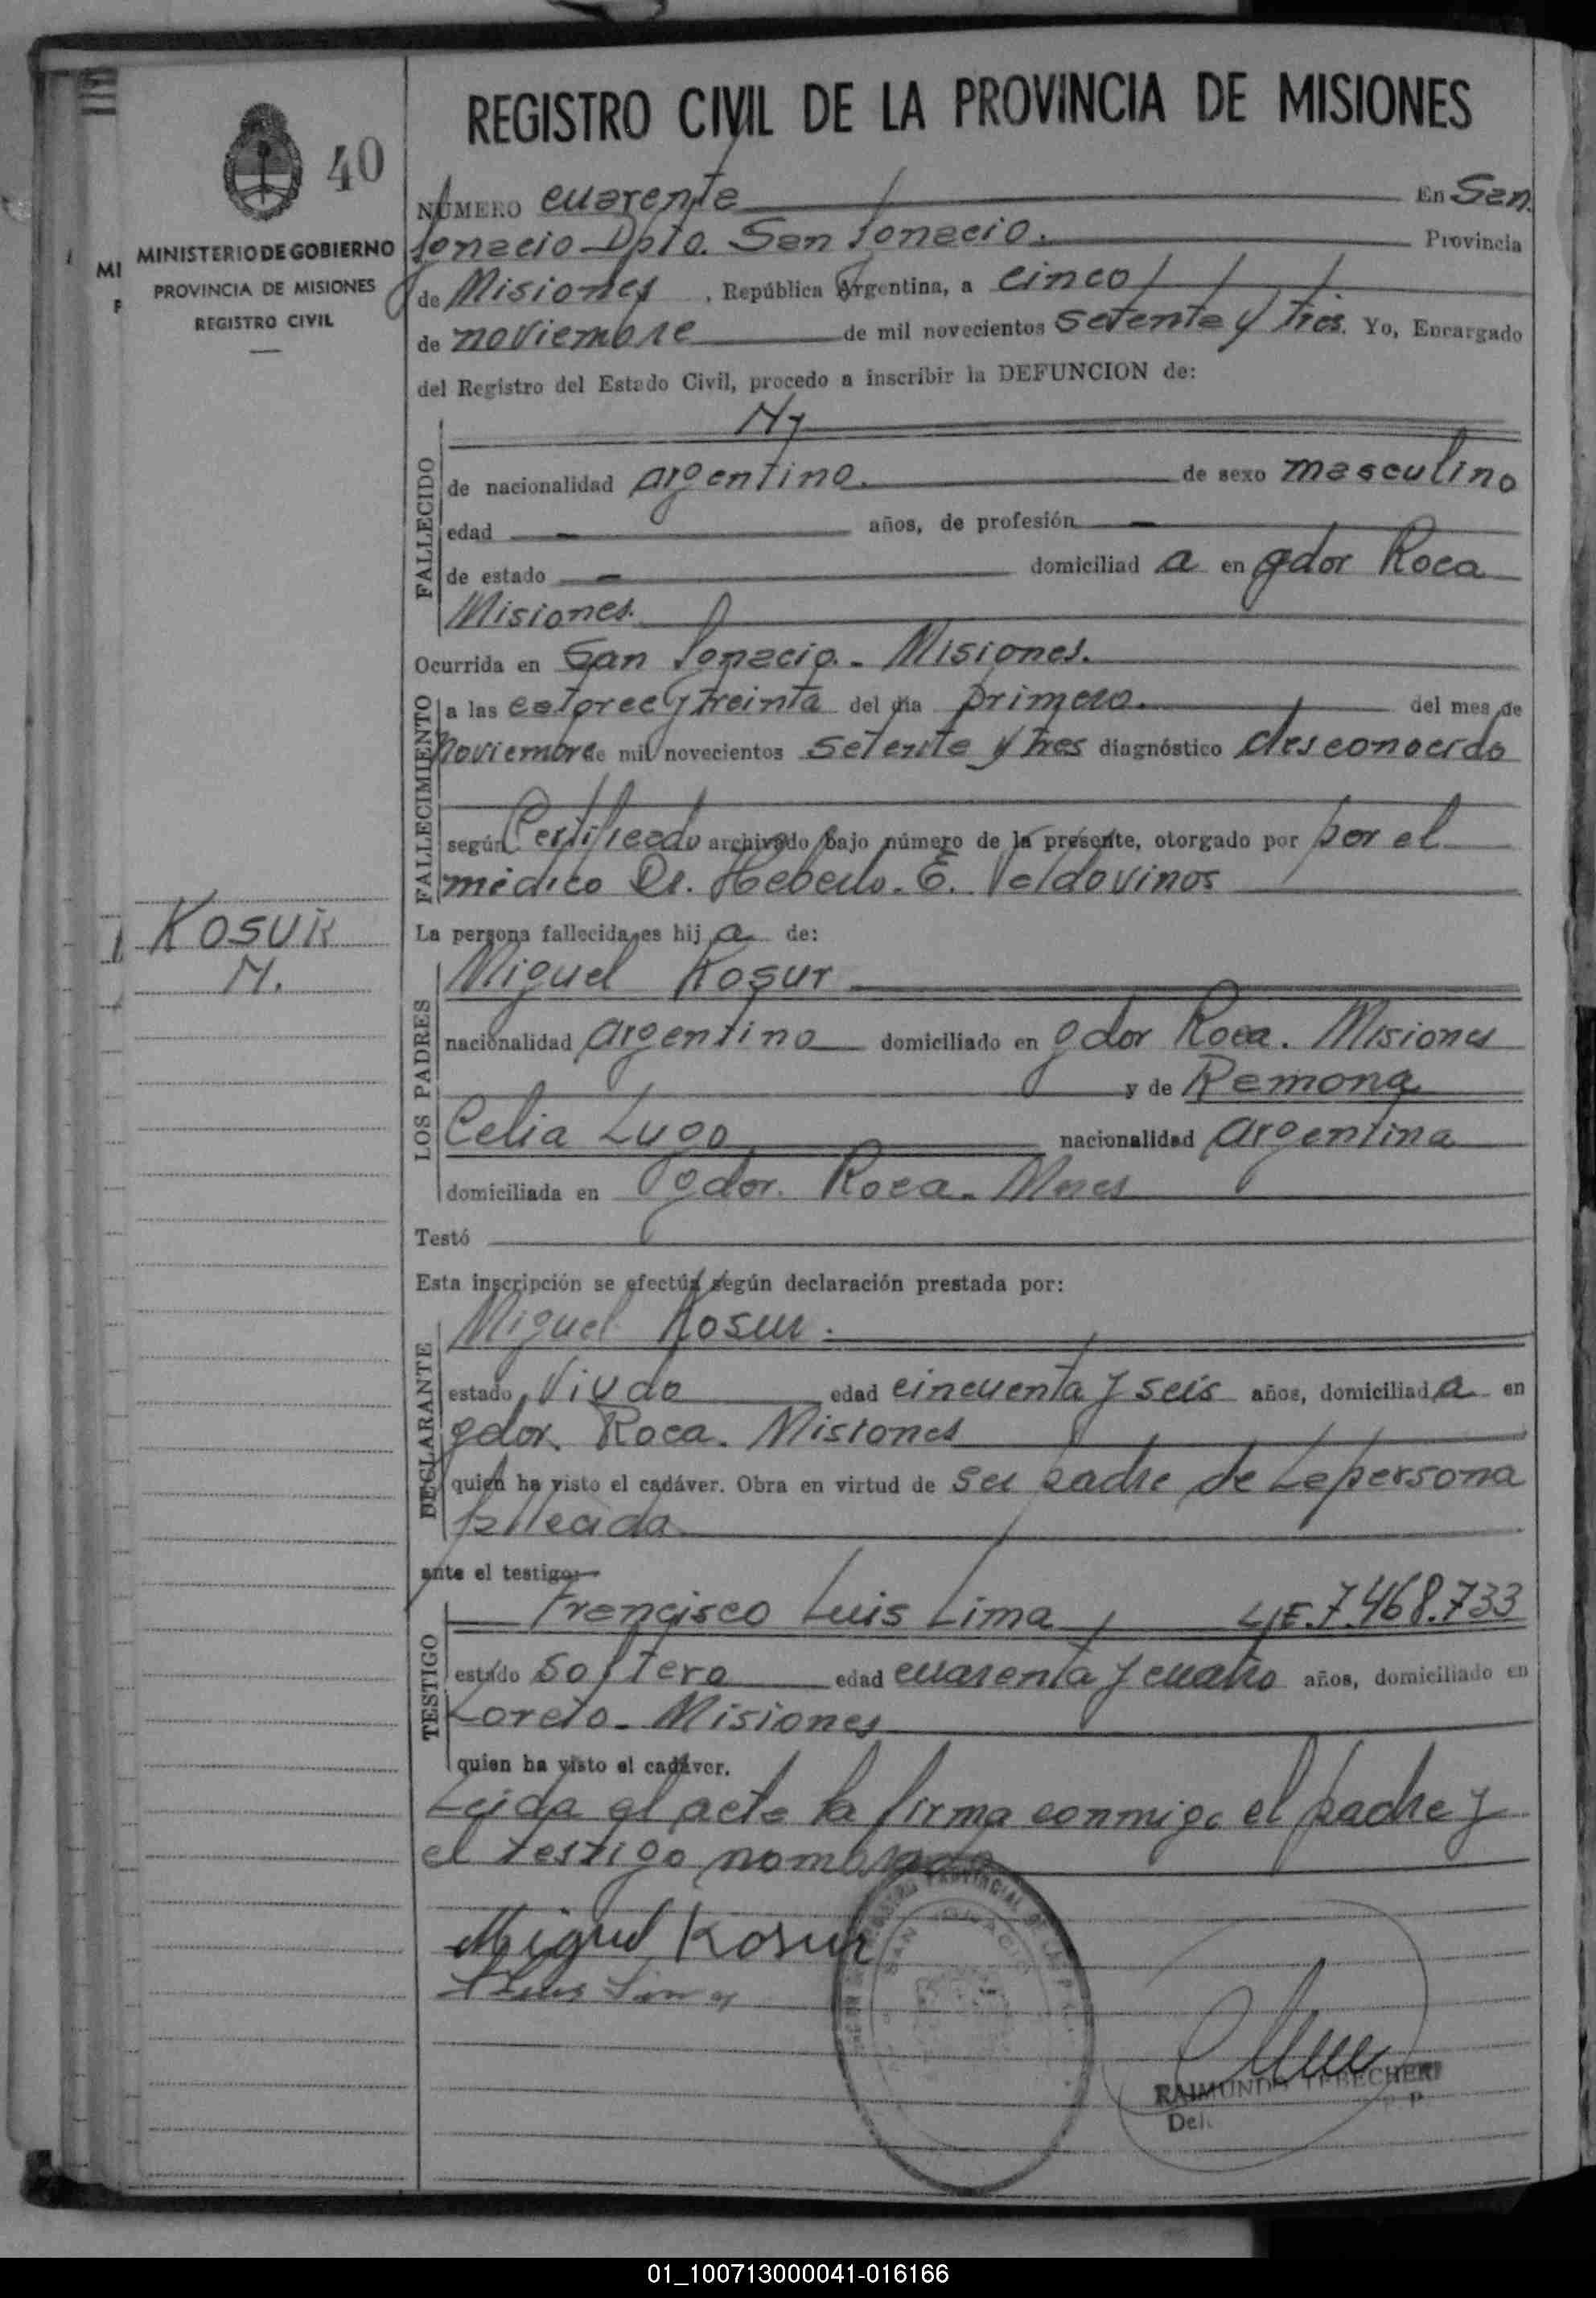 REGISTRO CIVIL DE LA PROVINCIA DE MISIONES
40
MINISTERIO DE GOBIERNO
PROVINCIA DE MISIONES
REGISTRO CIVIL
MI
P
NÚMERO cuarenta En San
Ignacio Dpto. San Ignacio. Provincia
de Misiones, República Argentina, a cinco
de noviembre de mil novecientos setenta y tres. Yo, Encargado
del Registro del Estado Civil, procedo a inscribir la DEFUNCION de:
FALLECIDO
de nacionalidad argentino. de sexo masculino
edad — años, de profesión —
de estado — domiciliad a en gdor Roca
Misiones.
Ocurrida en San Ignacio - Misiones.
FALLECIMIENTO
a las catorce y treinta del día primero. del mes de
Noviembre de mil novecientos setenta y tres diagnóstico desconocido
según Certificado archivado bajo número de la presente, otorgado por por el
médico Dr. Heberto. E. Valdovinos
KOSUR
N.
La persona fallecida es hij a de:
LOS PADRES
Miguel Kosur
nacionalidad argentino domiciliado en gdor Roca. Misiones
y de Ramona
Celia Lugo nacionalidad argentina
domiciliada en gdor. Roca. Mnes
Testó
Esta inscripción se efectúa según declaración prestada por:
DECLARANTE
Miguel Kosur.
estado Viudo edad cincuenta y seis años, domiciliad a en
gdor. Roca. Misiones
quien ha visto el cadáver. Obra en virtud de ser padre de La persona
fallecida
ante el testigo:
TESTIGO
Francisco Luis Lima L/E. 7.468.733
estado soltero edad cuarenta y cuatro años, domiciliado en
Loreto - Misiones
quien ha visto el cadáver.
Leida el acta la firma conmigo el padre y
el testigo nombrado
Miguel Kosur
RAIMUNDO TEBECHERI
Del.
01_100713000041-016166